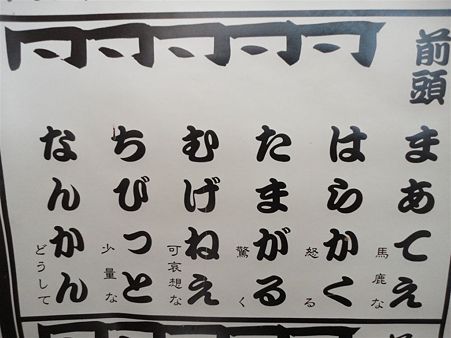 前頭
まあてえ
馬鹿な
同
はらかく
怒る
同
たまがる
驚く
同
むげねえ
可哀想な
同
ちびっと
少量な
同
なんかん
どうして